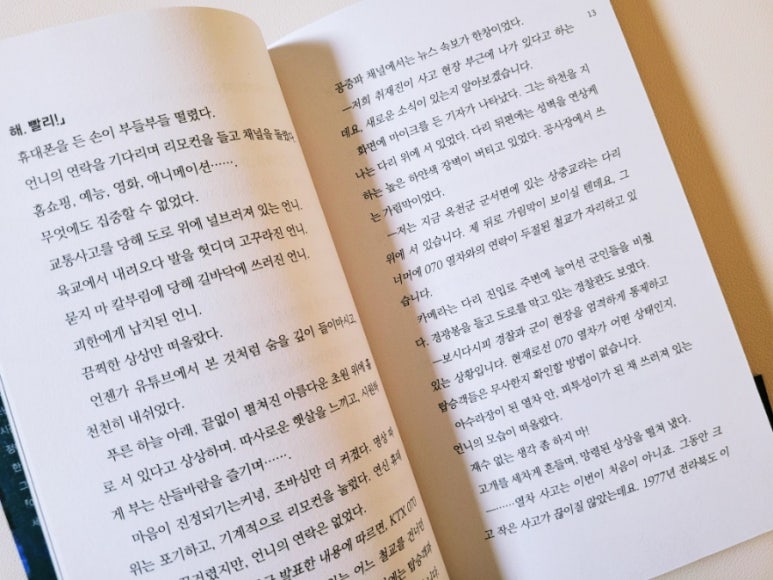 해. 빨리!」
휴대폰을 든 손이 부들부들 떨렸다.
언니의 연락을 기다리며 리모컨을 들고 채널을 돌렸다.
홈쇼핑, 예능, 영화, 애니메이션…….
무엇에도 집중할 수 없었다.
교통사고를 당해 도로 위에 널브러져 있는 언니.
육교에서 내려오다 발을 헛디뎌 고꾸라진 언니.
묻지 마 칼부림에 당해 길바닥에 쓰러진 언니.
괴한에게 납치된 언니.
끔찍한 상상만 떠올랐다.
언젠가 유튜브에서 본 것처럼 숨을 깊이 들이마시고
천천히 내쉬었다.
푸른 하늘 아래, 끝없이 펼쳐진 아름다운 초원 위에 홀
로 서 있다고 상상하며. 따사로운 햇살을 느끼고, 시원하
게 부는 산들바람을 즐기며…….
마음이 진정되기는커녕, 조바심만 더 커졌다. 명상 따
위는 포기하고, 기계적으로 리모컨을 눌렀다. 연신 휴대
언니의 연락은 없었다.
발표한 내용에 따르면, KTX 070
있는 어느 철교를 건너던
탑승객과
13
공중파 채널에서는 뉴스 속보가 한창이었다.
―저희 취재진이 사고 현장 부근에 나가 있다고 하는
데요, 새로운 소식이 있는지 알아보겠습니다.
화면에 마이크를 든 기자가 나타났다. 그는 하천을 지
나는 다리 위에 서 있었다. 다리 뒤편에는 성벽을 연상케
하는 높은 하얀색 장벽이 버티고 있었다. 공사장에서 쓰
는 가림막이었다.
―저는 지금 옥천군 군서면에 있는 상중교라는 다리
위에 서 있습니다. 제 뒤로 가림막이 보이실 텐데요, 그
너머에 070 열차와의 연락이 두절된 철교가 자리하고 있
습니다.
카메라는 다리 진입로 주변에 늘어선 군인들을 비췄
다. 경광봉을 들고 도로를 막고 있는 경찰관도 보였다.
―보시다시피 경찰과 군이 현장을 엄격하게 통제하고
있는 상황입니다. 현재로선 070 열차가 어떤 상태인지,
탑승객들은 무사한지 확인할 방법이 없습니다.
아수라장이 된 열차 안, 피투성이가 된 채 쓰러져 있는
언니의 모습이 떠올랐다.
재수 없는 생각 좀 하지 마!
고개를 세차게 흔들며, 망령된 상상을 떨쳐 냈다.
―……열차 사고는 이번이 처음이 아니죠. 그동안 크
고 작은 사고가 끊이질 않았는데요. 1977년 전라북도 이